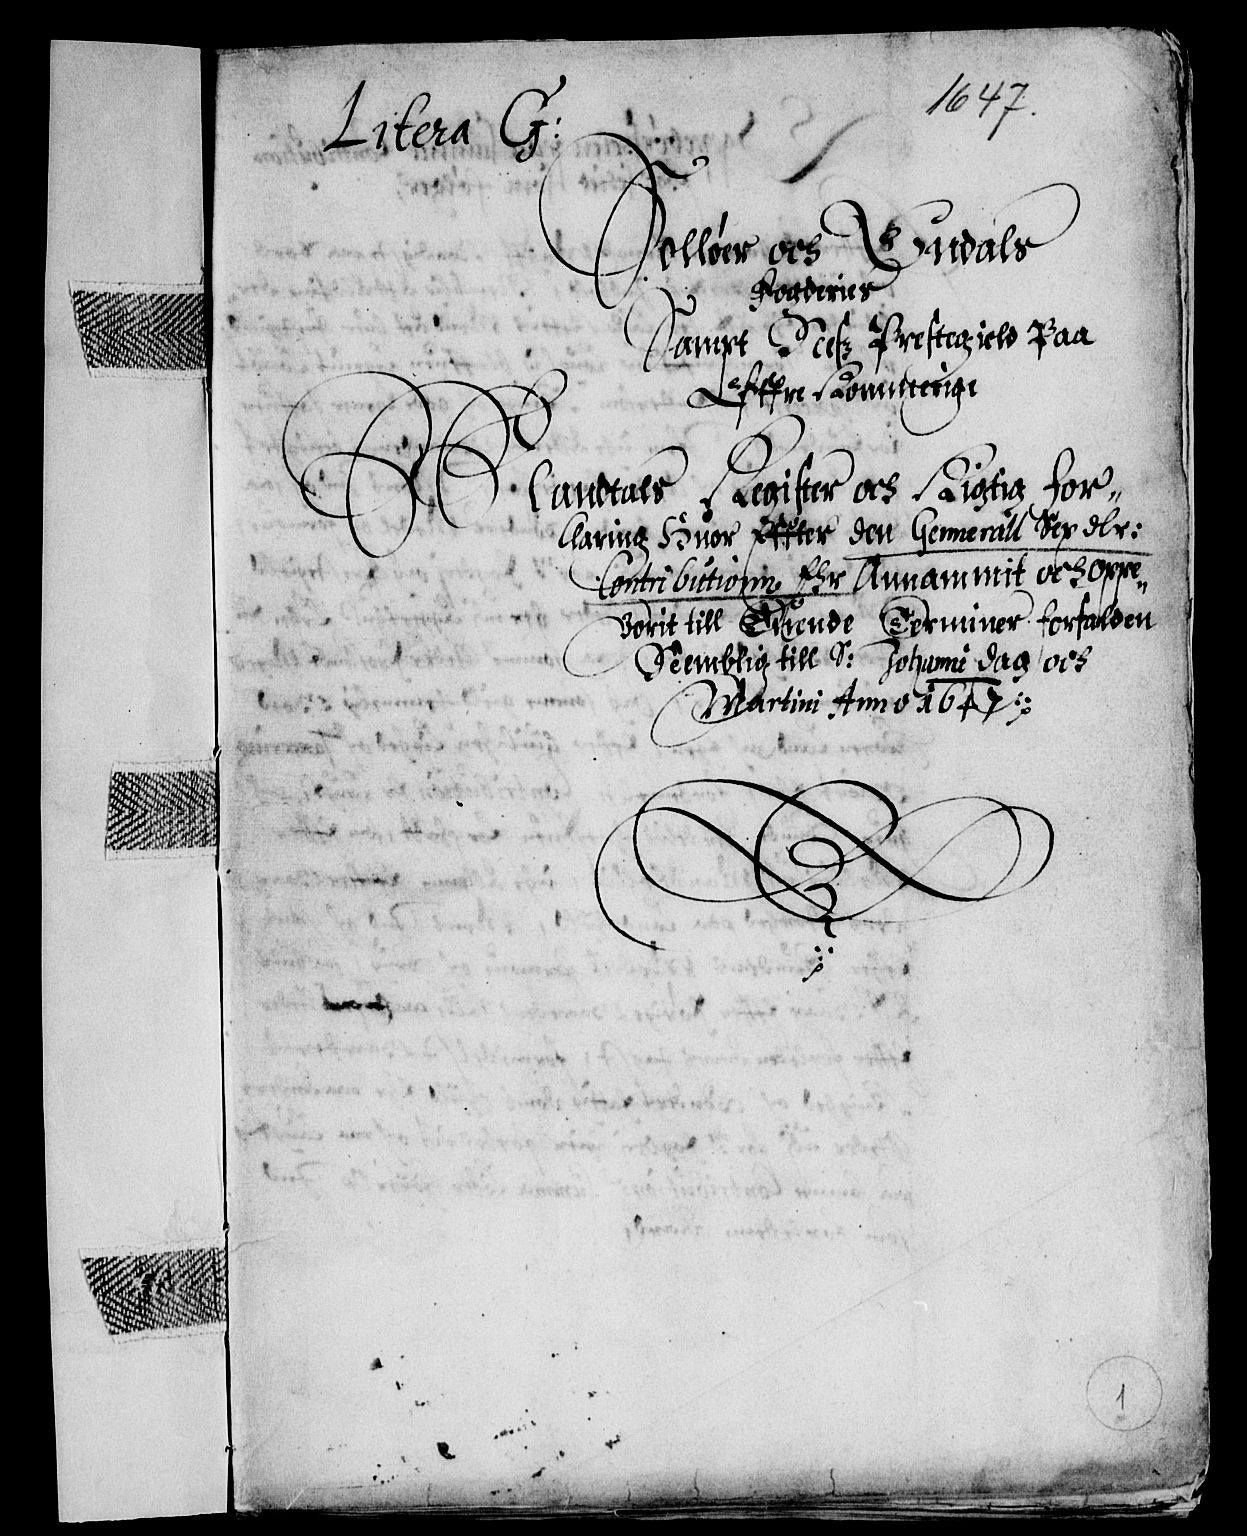 Litera G:
1647.
Solløer och Eudals
Fogderies
Sampt Næs Prestegield Paa
Øffre Rommerige
Mandtals Register och Rigtig For„
Claring Huor Effter den Gennerall Sex dlr:
Contributionn Ehr Annammit och Oppe„
Borit till Thuende Terminer forfalden
Nemblig till S: Johanni dag och
Martini Anno 1647
1